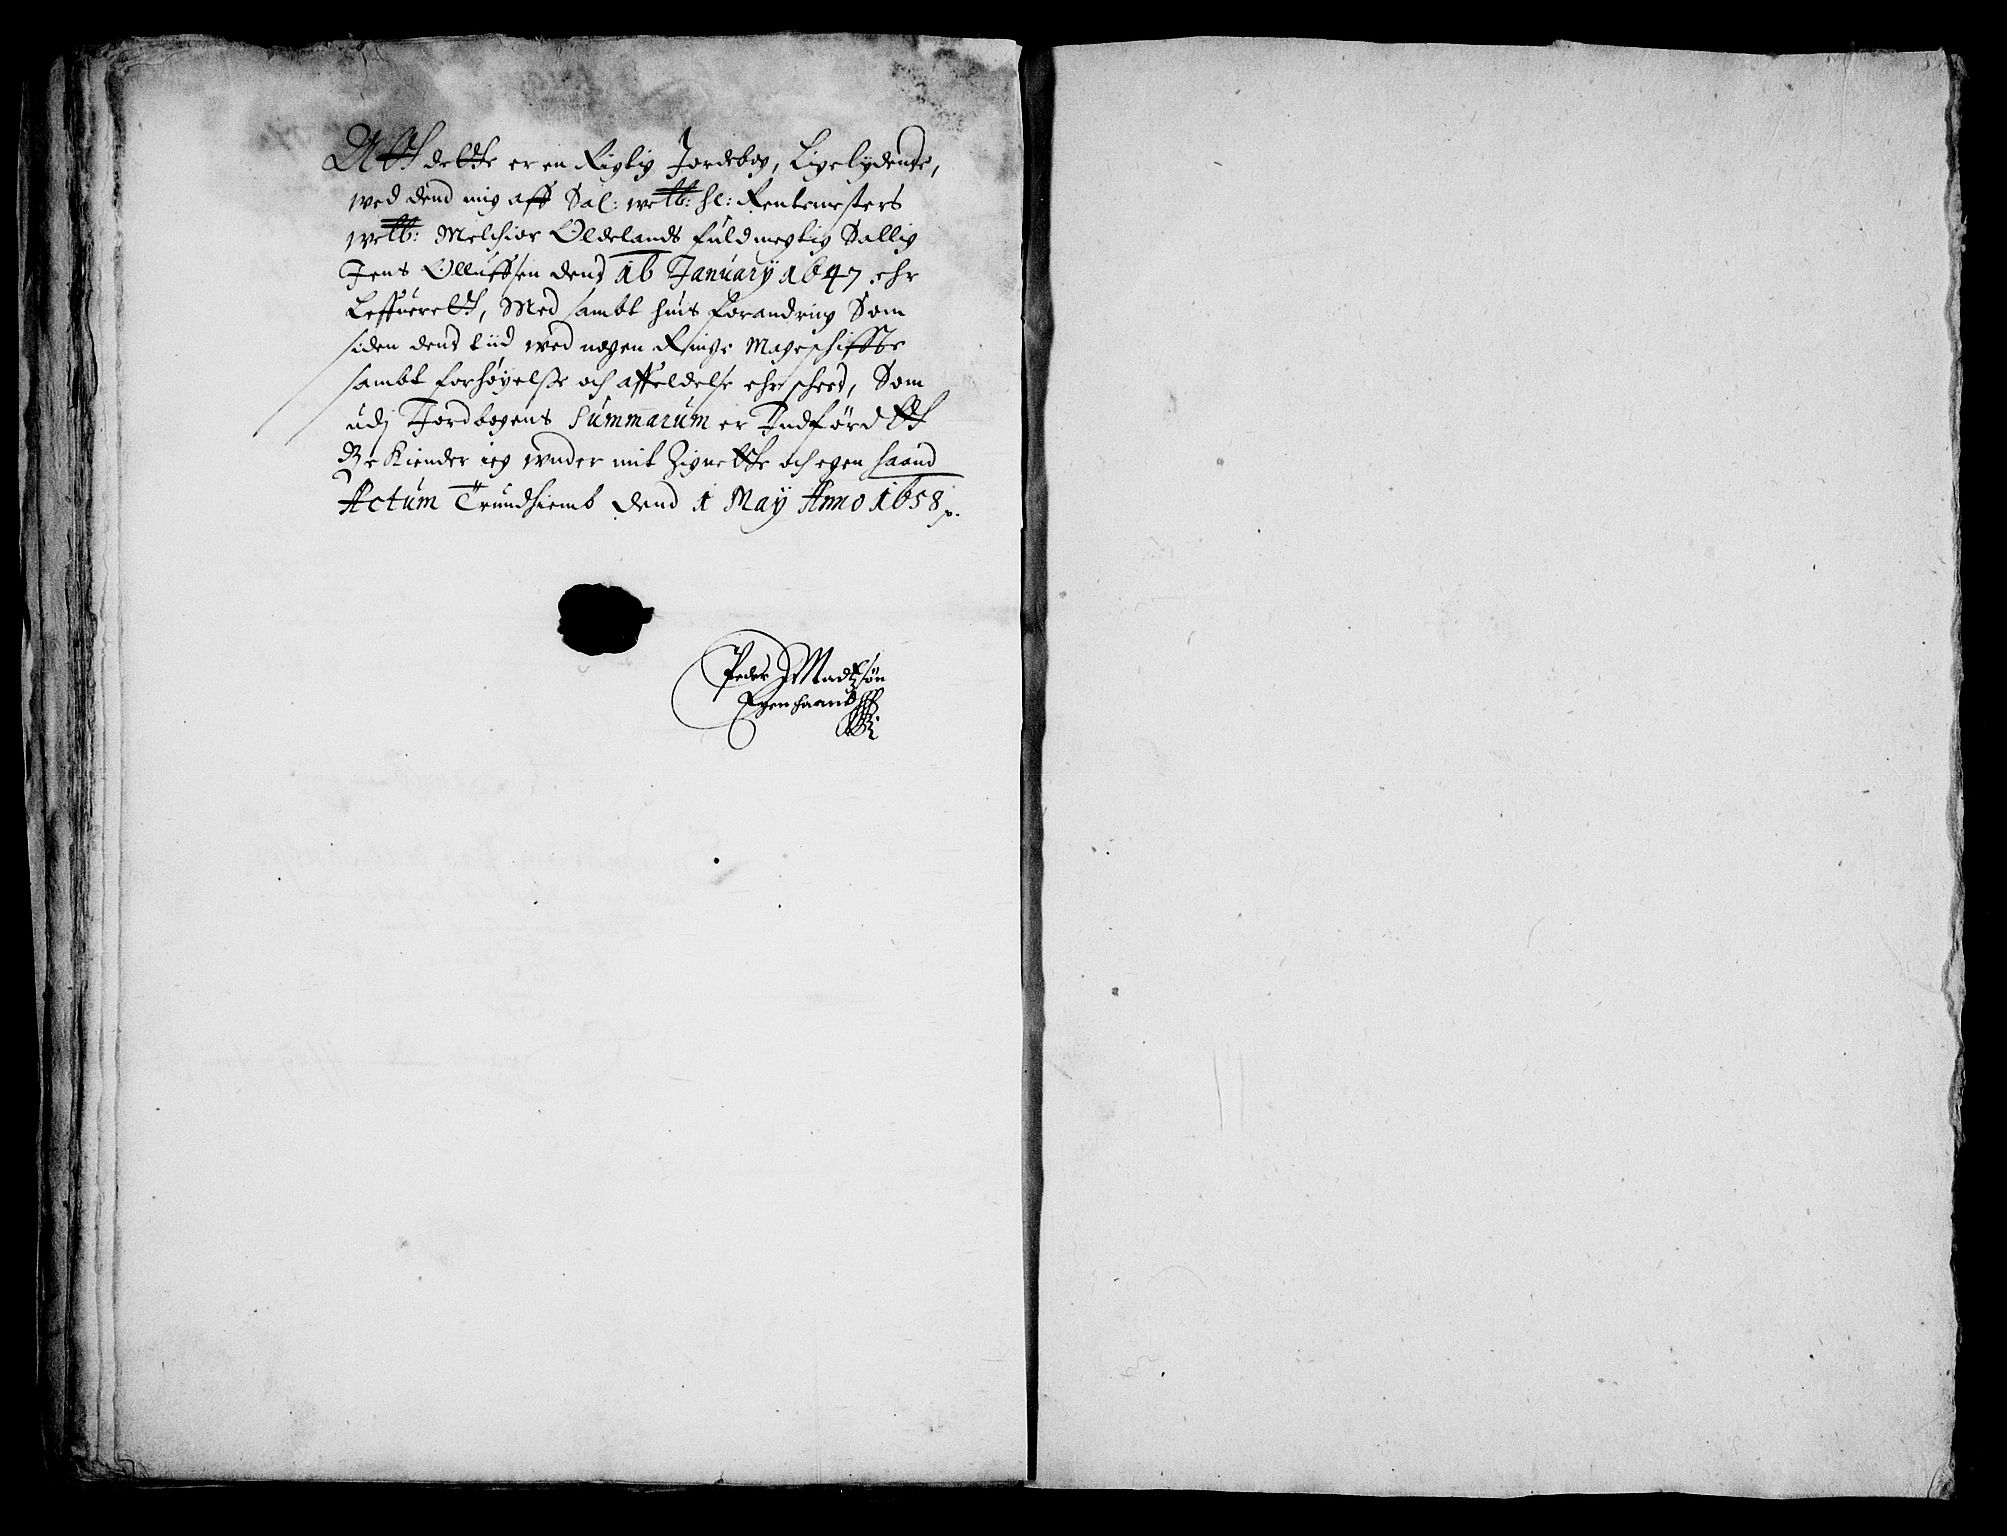 Att dette er en Rigtig Jordebog, Ligelydende,
wed dend mig aff Sal: welb: hl: Rentemesters
welb: Melchior Oldelands fuldmegtig Sallig
Jens Olluffsen dend 16 January 1647 ehr
Leffuerett, Med sambt huis forandring Som
siden dend tiid wed nogen Ringe Mageschiffte
sambt forhøyelse och affeldelse ehr scheed, Som
udj Jordbogens Summarum er Indførdt
Be Kiender ieg wnder mit Zignette och egen haand
Actum Trundhiemb dend 1 May Anno 1658
Peder Madtzøn
Egen haand